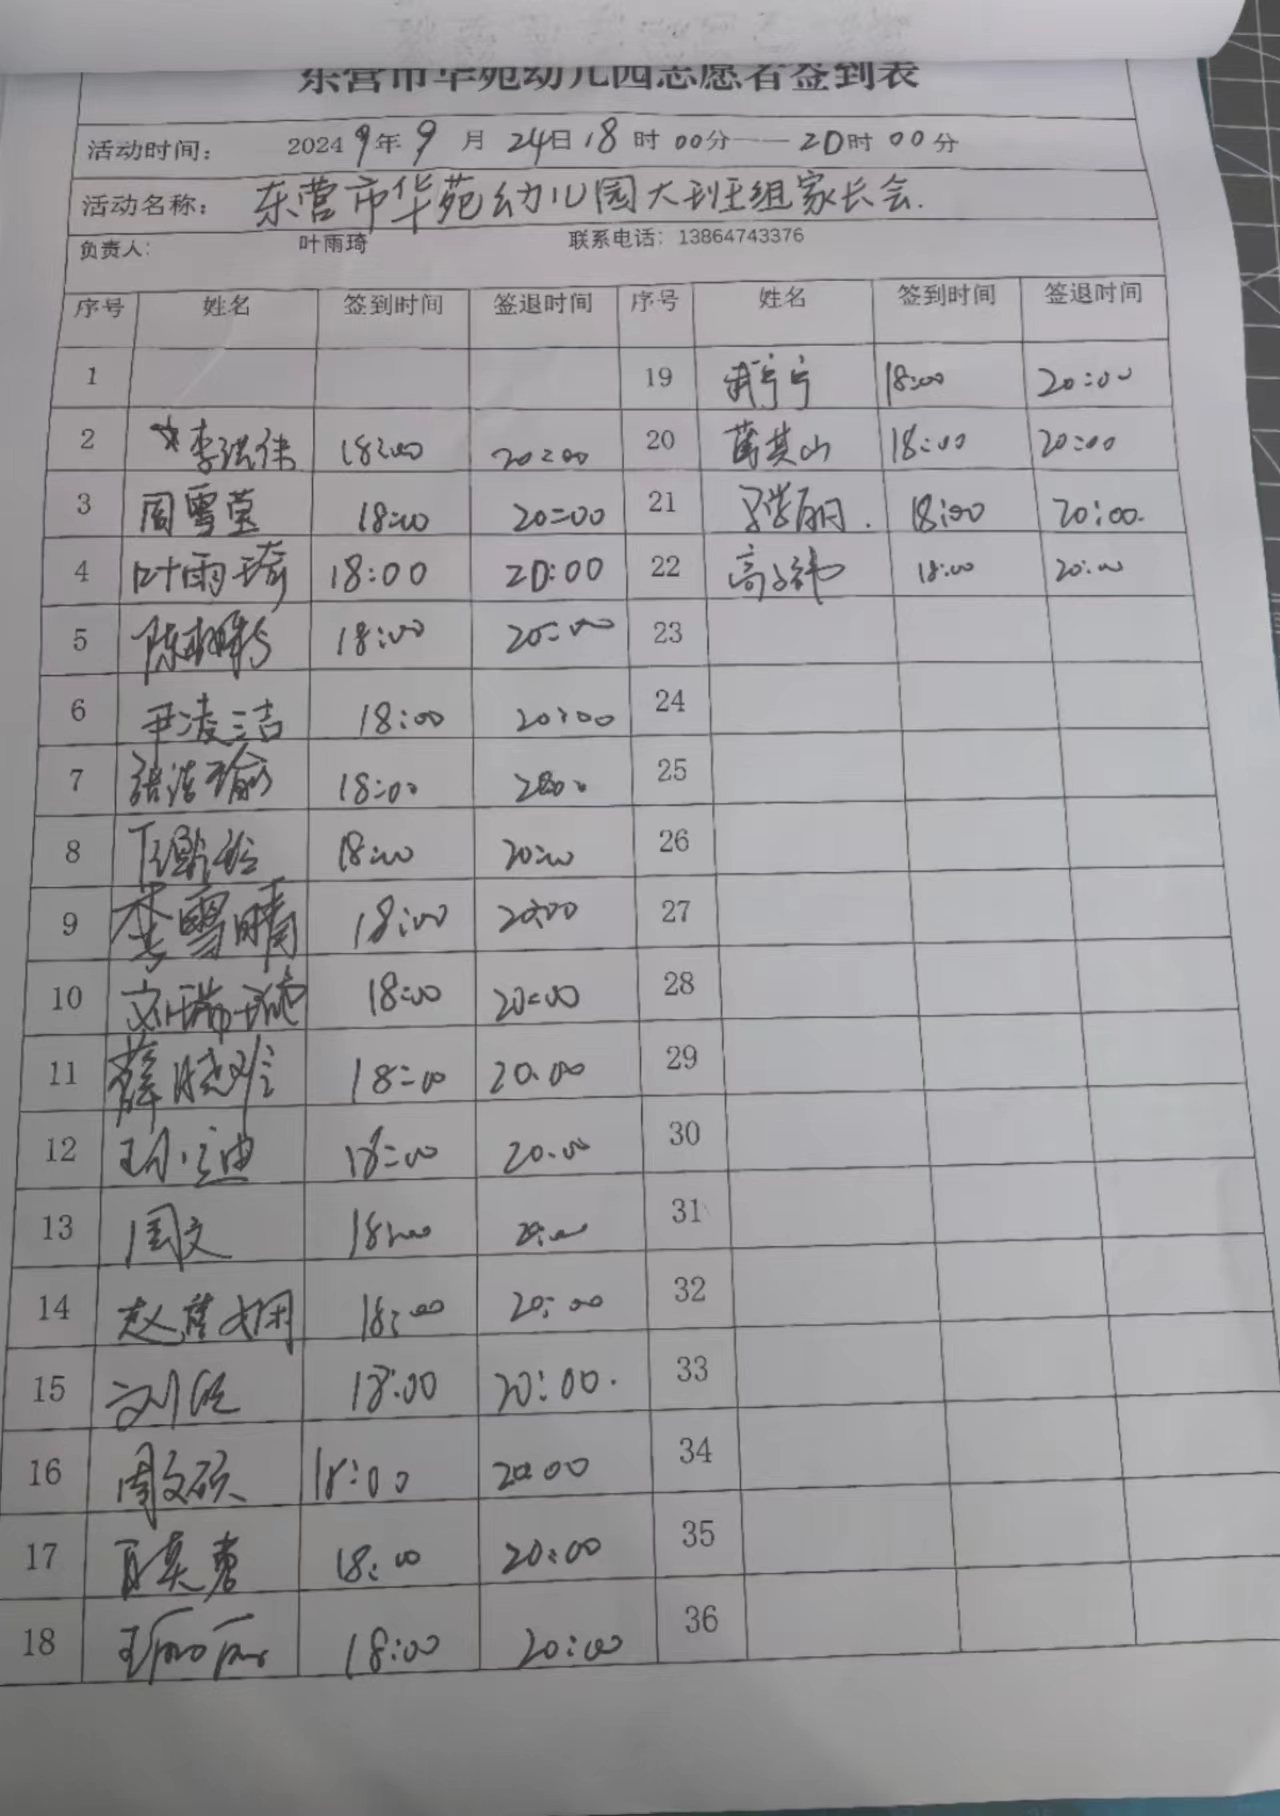 东营市华苑幼儿园志愿者签到表
活动时间： 2024 9年 9 月 24日 18 时 00分——20时 00分
活动名称： 东营市华苑幼儿园大班组家长会.
负责人： 叶雨琦 联系电话：13864743376
序号 姓名 签到时间 签退时间 序号 姓名 签到时间 签退时间
1 19 宁宁 18:00 20:00
2 李洪伟 18:00 20:00 20 苗其山 18:00 20:00
3 周雪莹 18:00 20:00 21 18:00 20:00.
4 叶雨琦 18:00 20:00 22 高 18:00 20:00
5 陈 18:00 20:00 23
6 尹凌洁 18:00 20:00 24
7 张洁瑜 18:00 20:00 25
8 18:00 20:00 26
9 李雪晴 18:00 20:00 27
10 刘瑞琬 18:00 20:00 28
11 薛晓 18:00 20.00 29
12 迪 18:00 20.00 30
13 周文 18:00 20:00 31
14 赵 娴 18:00 20:00 32
15 刘 18:00 20:00. 33
16 周文硕 18:00 20:00 34
17 18:00 20:00 35
18 王丽丽 18:00 20:00 36